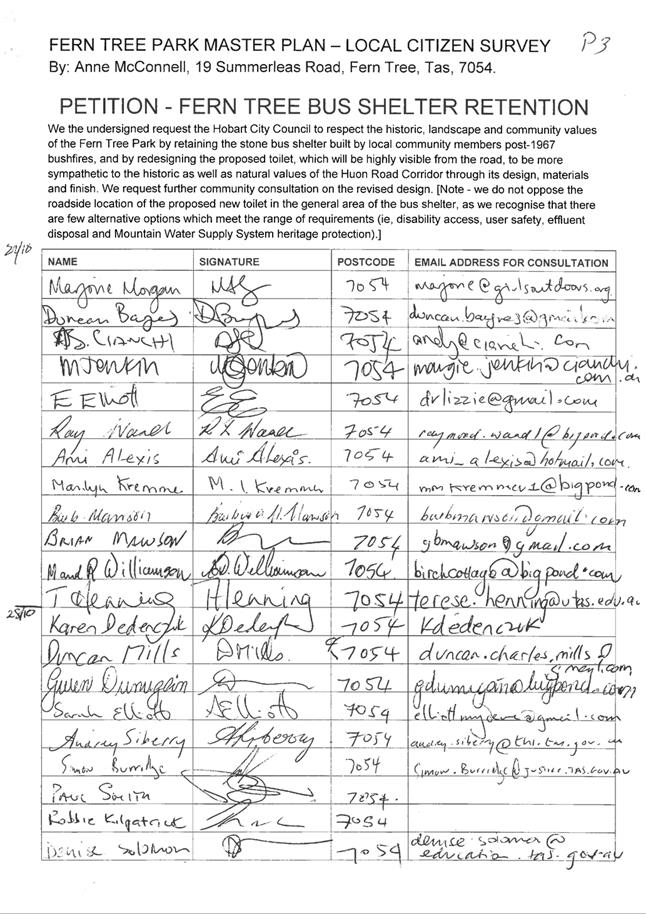 FERN TREE PARK MASTER PLAN – LOCAL CITIZEN SURVEY P3
By: Anne McConnell, 19 Summerleas Road, Fern Tree, Tas, 7054.
PETITION - FERN TREE BUS SHELTER RETENTION
We the undersigned request the Hobart City Council to respect the historic, landscape and community values
of the Fern Tree Park by retaining the stone bus shelter built by local community members post-1967
bushfires, and by redesigning the proposed toilet, which will be highly visible from the road, to be more
sympathetic to the historic as well as natural values of the Huon Road Corridor through its design, materials
and finish. We request further community consultation on the revised design. [Note - we do not oppose the
roadside location of the proposed new toilet in the general area of the bus shelter, as we recognise that there
are few alternative options which meet the range of requirements (ie, disability access, user safety, effluent
disposal and Mountain Water Supply System heritage protection).]
NAME SIGNATURE POSTCODE EMAIL ADDRESS FOR CONSULTATION
Marjorie Morgan 7054
Duncan 7054
CIANCHI 7054
M Jenkin 7054
com.au
E Elliott 7054 drlizzie@gmail.com
Ray 7054
Ami Alexis Ami Alexis. 7054 ami_alexis@hotmail.com.
Marilyn M. I 7054
Barb 7054
BRIAN MAWSON 7054 gbmawson@gmail.com
M and R Williamson Williamson 7054 birchcottage@bigpond.com
T Henning Henning 7054 terese.henning@utas.edu.au
25/10
Karen Dedenczuk 7054 Kdedenczuk
Duncan Mills DMills. 7054 duncan.charles.mills@
gmail.com
Gwen 7054
Sarah Elliott SElliott 7054
Audrey Siberry 7054
Simon Burridge 7054 Simon.Burridge@justice.tas.gov.au
PAUL SMITH 7054.
Robbie Kilpatrick 7054
DENISE SOLOMON 7054 denise.solomon@
education.tas.gov.au